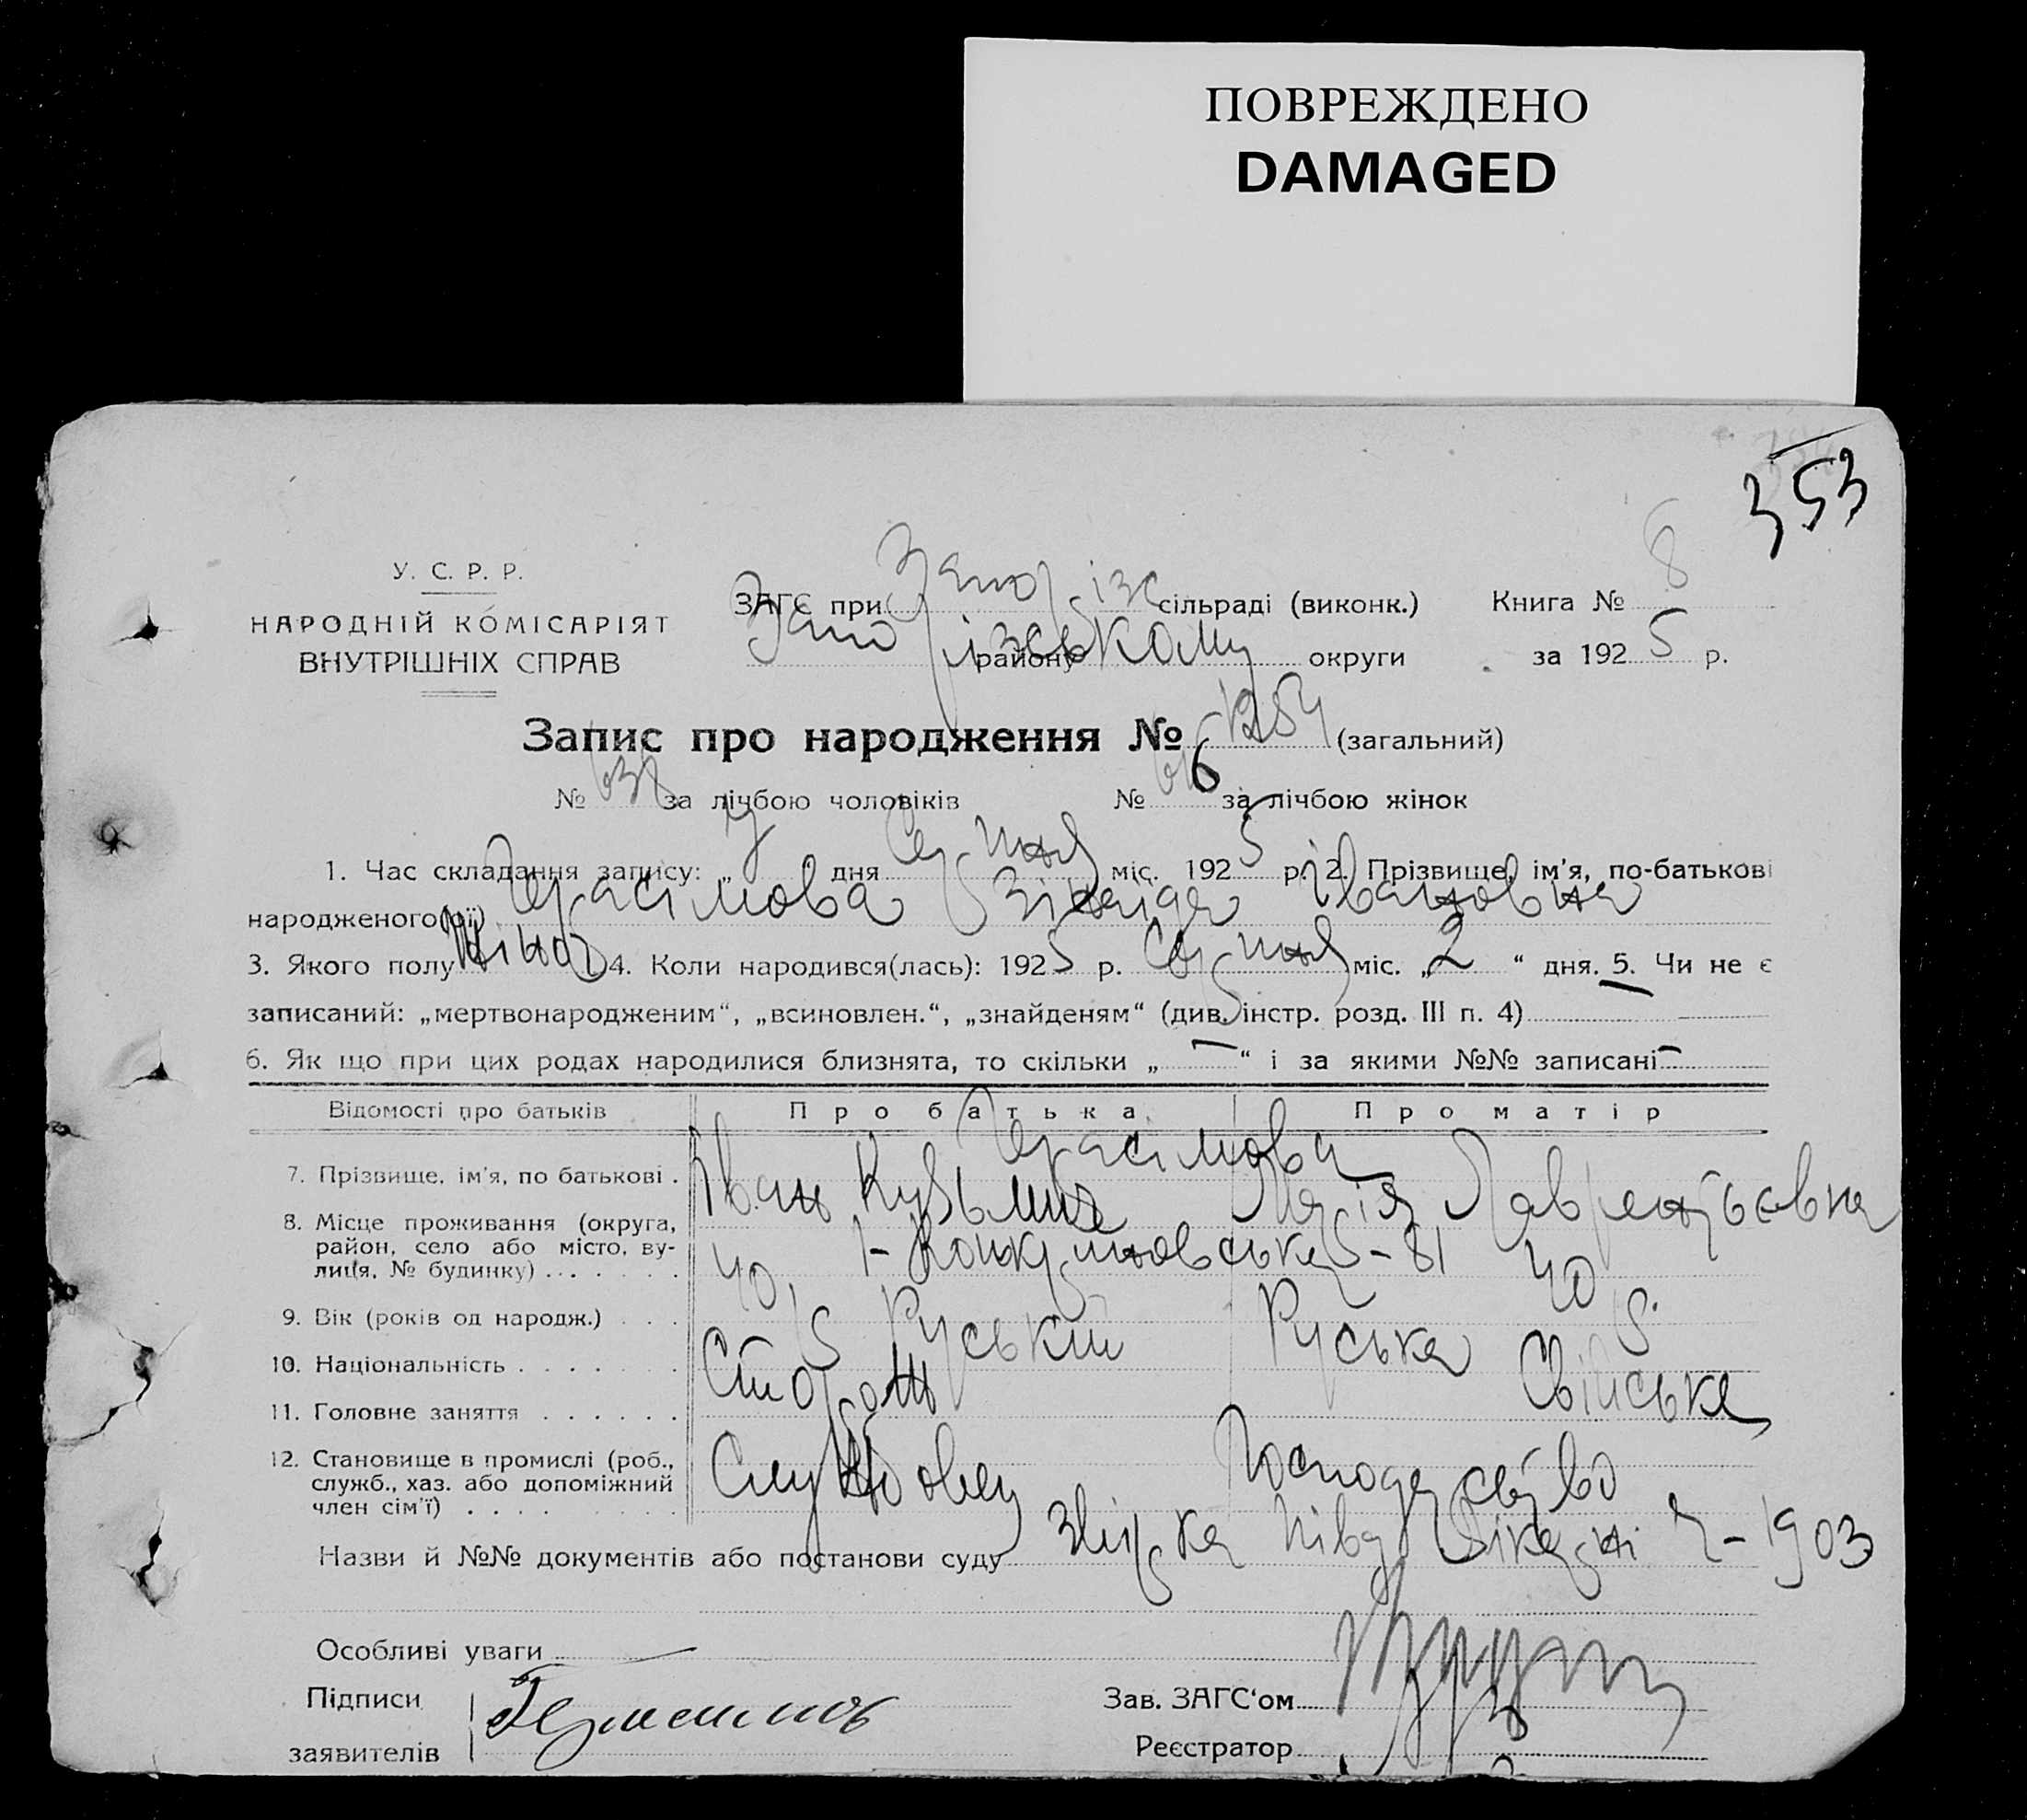 ПОВРЕЖДЕНО
DAMAGED
353
У. С. Р. Р.
НАРОДНІЙ КОМІСАРІЯТ
ВНУТРІШНІХ СПРАВ
ЗАГС при Запорізь сільраді (виконк.) Книга № 8
Запорізькому району округи за 1925 р.
Запис про народження № 1254 (загальний)
№ 638 за лічбою чоловіків № за лічбою жінок
1. Час складання запису: „7“ дня Серпня міс. 1925 р. 2. Прізвище, ім'я, по-батькові
народженого(ої) Герасімова Зінаіда Івановна
3. Якого полу Жіноч. 4. Коли народився(лась): 1925 р. Серпня міс. „2“ дня. 5. Чи не є
записаний: „мертвонародженим“, „всиновлен.“, „знайденям“ (див. інстр. розд. III п. 4)
6. Як що при цих родах народилися близнята, то скільки „—“ і за якими №№ записані —
Відомості про батьків Про батька Про матір
7. Прізвище, ім'я, по батькові . Герасімови
Іван Кузьмич Марія Лаврентьєвна
8. Місце проживання (округа,
район, село або місто, ву-
лиця, № будинку) . . . . . . . 81
9. Вік (років од народж.) . . . 40 р. 40 р.
10. Національність . . . . . . . Руський Руська
11. Головне заняття . . . . . . Сторож Свійське
Господарство
12. Становище в промислі (роб.,
служб., хаз. або допоміжний
член сім'ї) . . . . . . . . . Службовец
Назви й №№ документів або постанови суду Збірка Лікарні Ч – 1903
Особливі уваги —
Підписи
заявителів Герасимов
Зав. ЗАГС'ом
Реєстратор